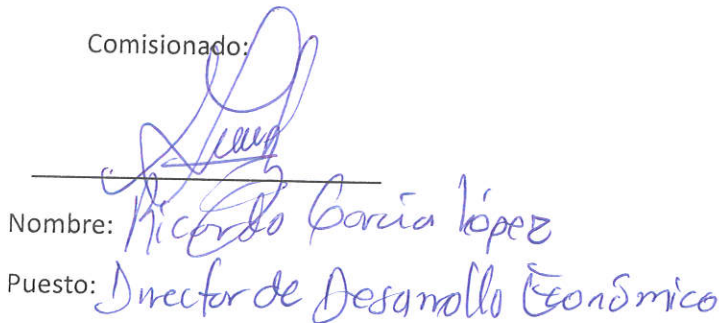 Comisionado:
Nombre: Ricardo García López
Puesto: Director de Desarrollo Económico